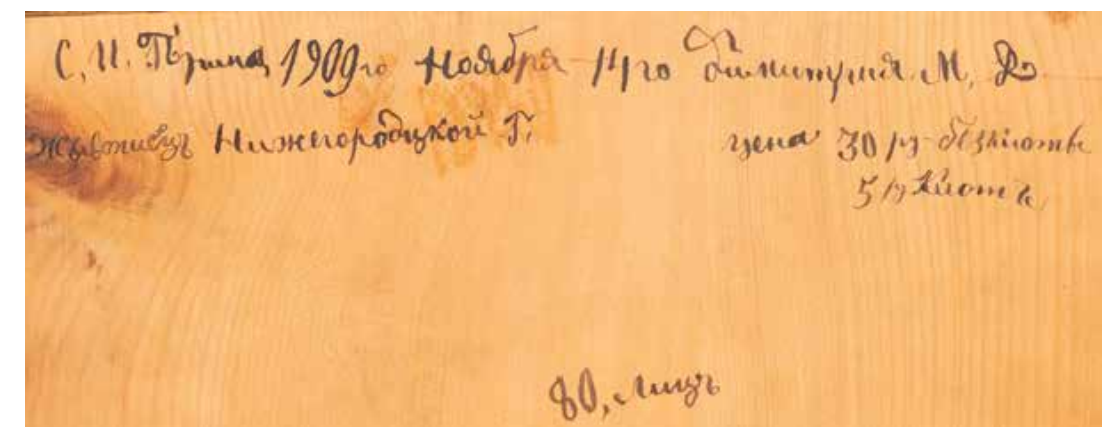 С. И. 1909го Ноября 14го Димитрия. М. Д
Живописецъ Нижегородцкой Г. цена 30 рз безкиота
5 рз Киотъ
80, лицъ